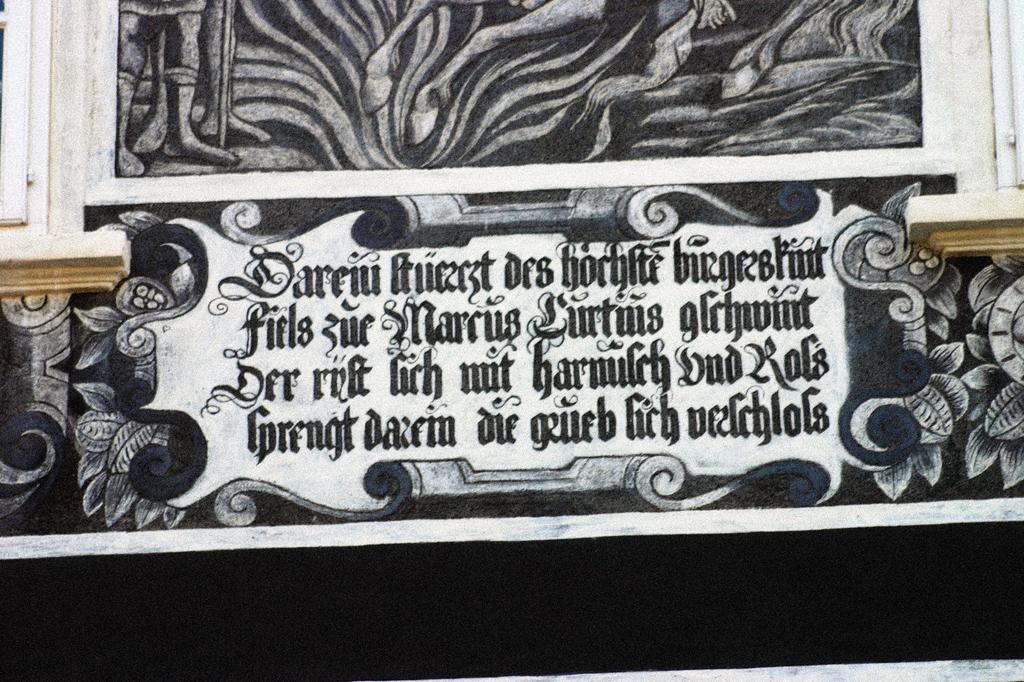 Darein stüerczt des höchstē burgerskint
fiels zue Marcus Curtius gschwint
Der ryst sich mit harnisch Vnd Ross
sprengt darein die grueb sich verschloss